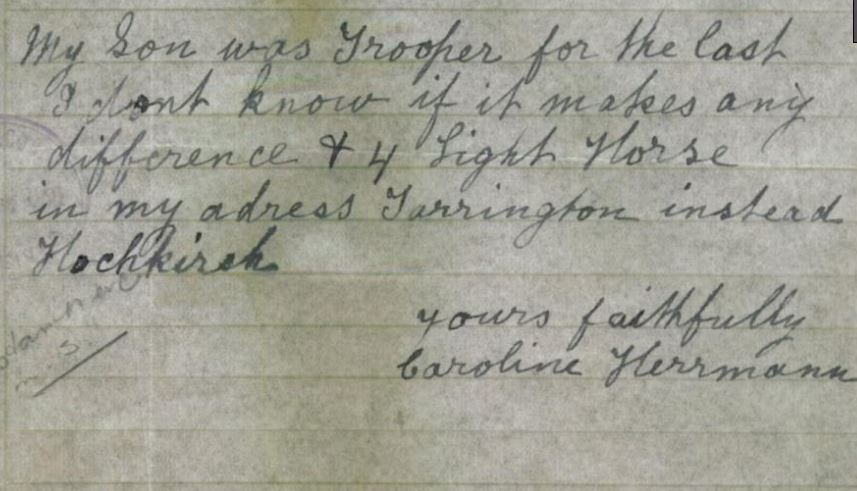 My Son was Trooper for the last
I dont know if it makes any
difference & 4 Light Horse
in my adress Tarrington instead
Hochkirch
yours faithfully
Caroline Herrmann